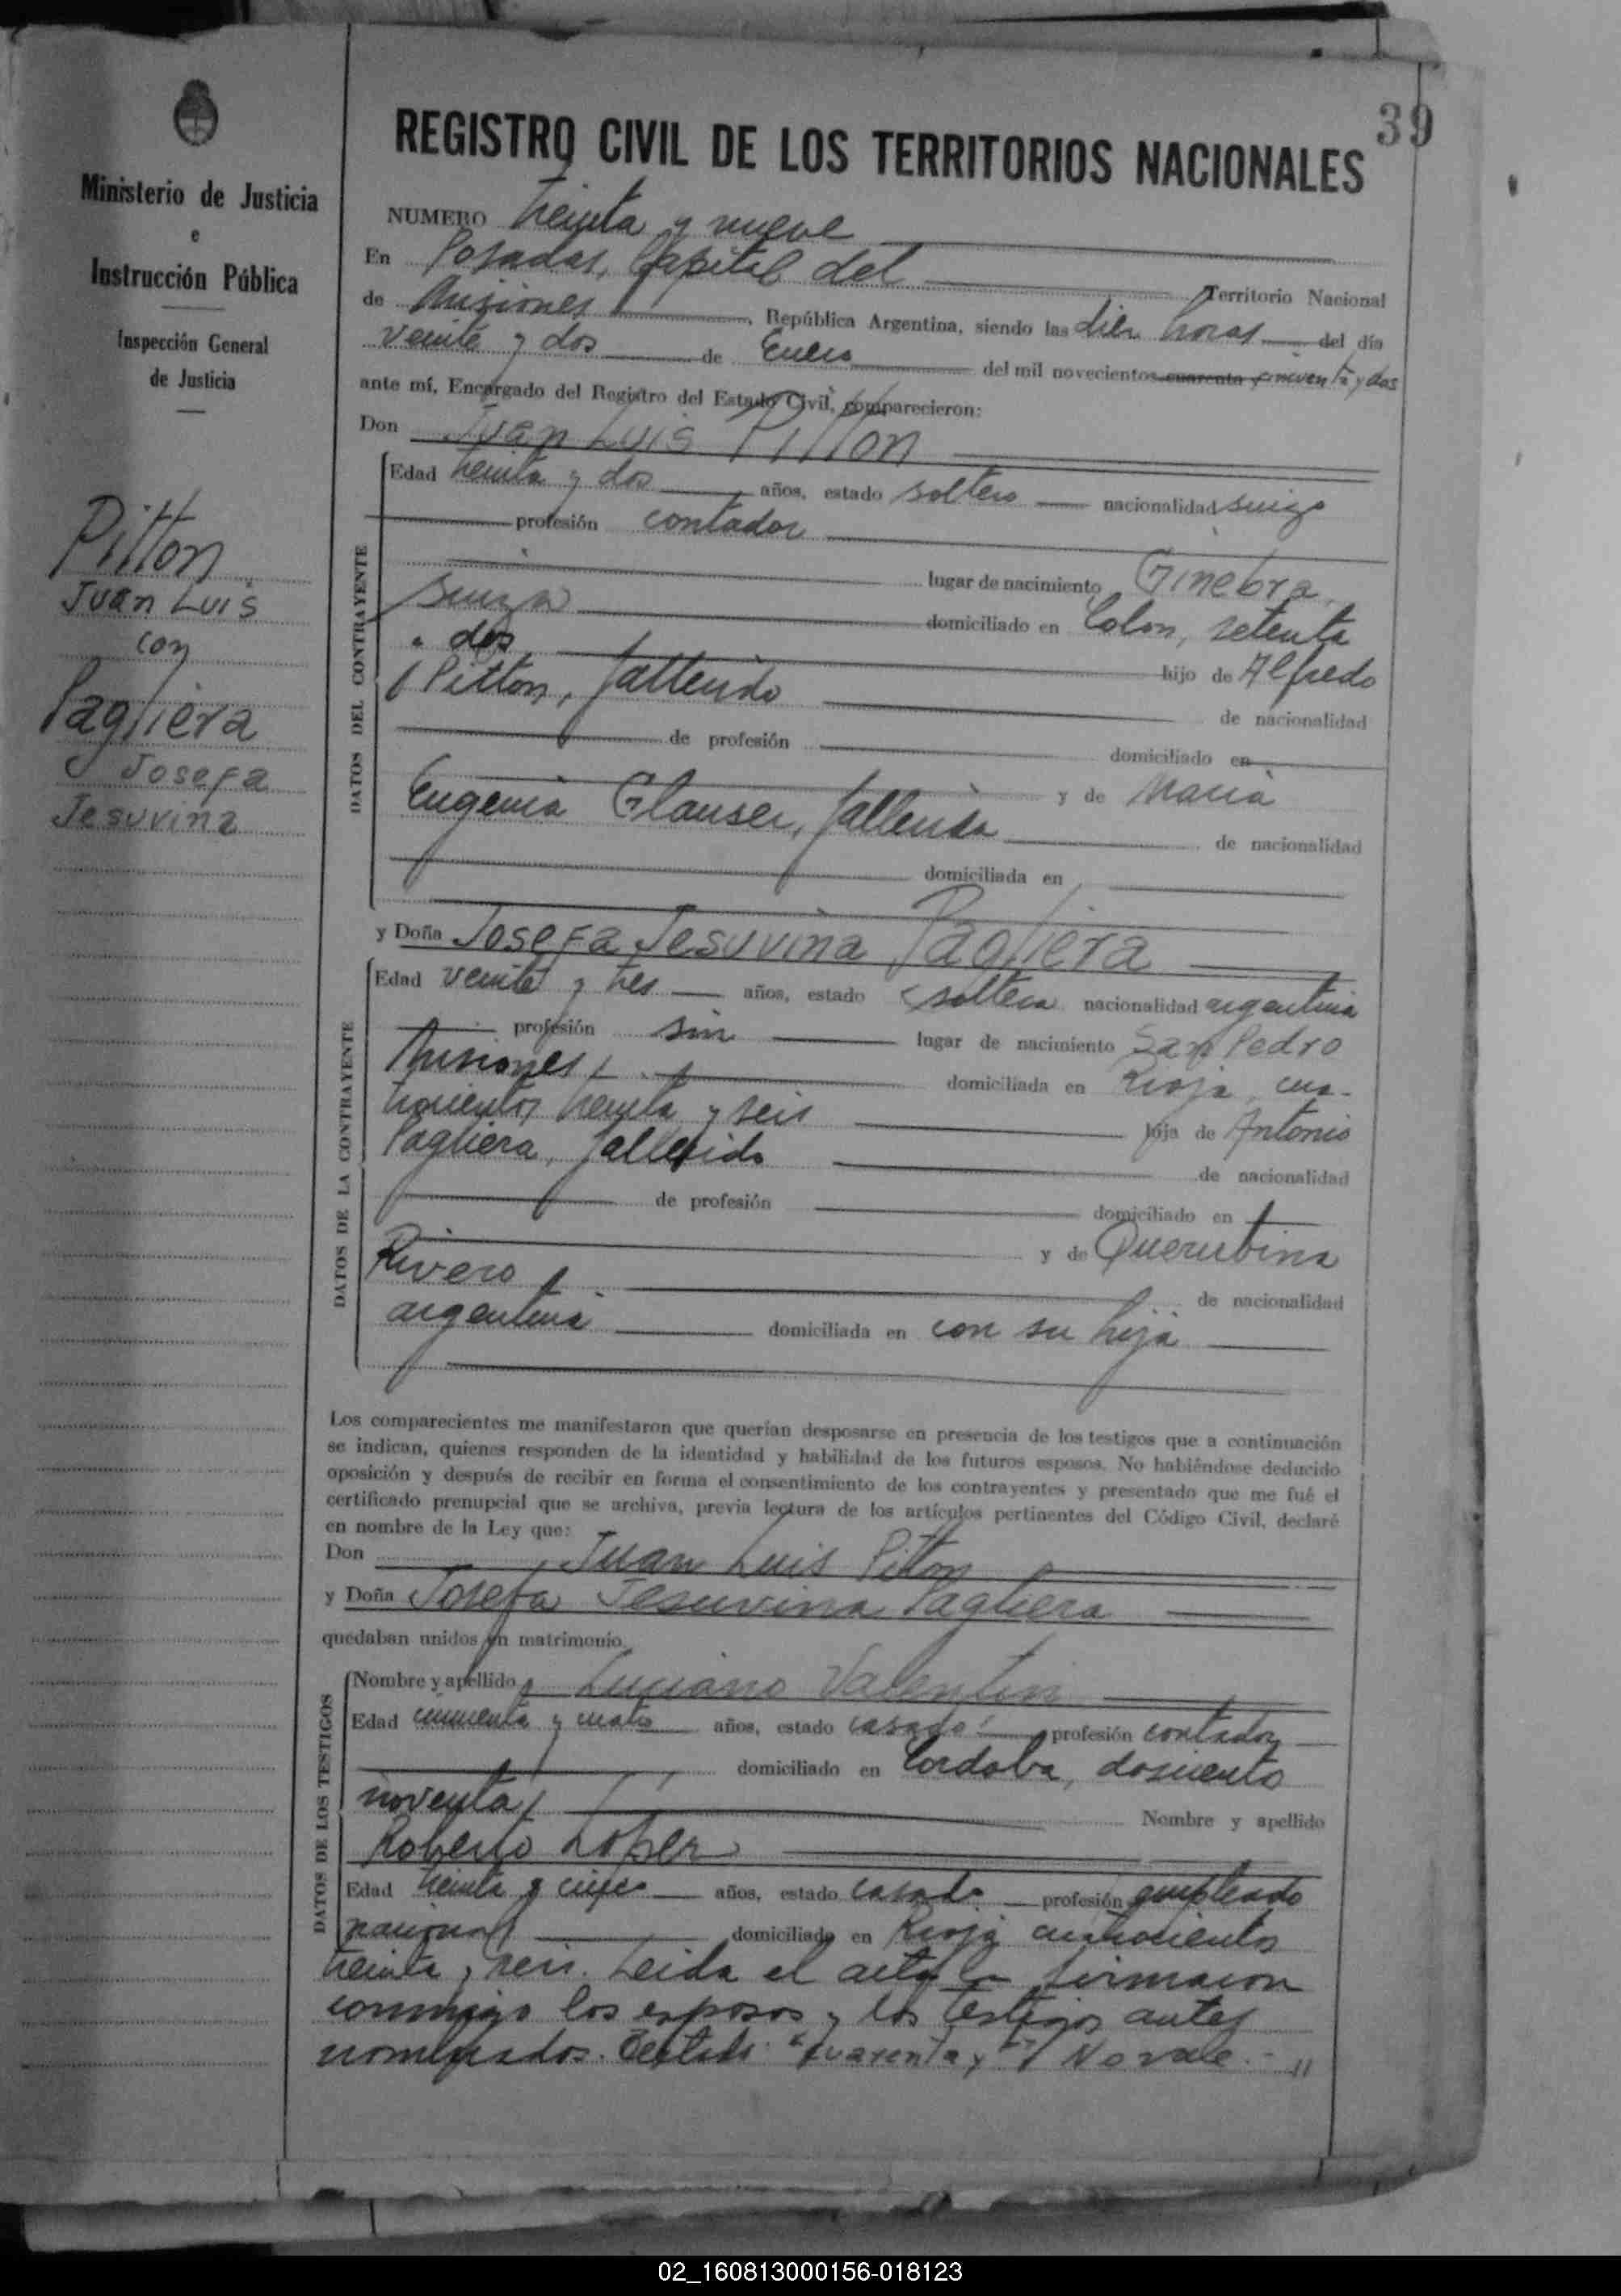 39
Ministerio de Justicia
e
Instrucción Pública
Inspección General
de Justicia
Pitton
Juan Luis
con
Pagliera
Josefa
Jesuvina
REGISTRO CIVIL DE LOS TERRITORIOS NACIONALES
NUMERO treinta y nueve
En Posadas, Capital del Territorio Nacional
de Misiones, República Argentina, siendo las diez horas del día
veinte y dos de Enero del mil novecientos cuarenta y cincuenta y dos
ante mí, Encargado del Registro del Estado Civil, comparecieron:
Don Juan Luis Pitton
DATOS DEL CONTRAYENTE
Edad treinta y dos años, estado soltero nacionalidad suizo
profesión contador
lugar de nacimiento Ginebra
suiza domiciliado en Colon, setenta
y dos hijo de Alfredo
Pitton, fallecido de nacionalidad
de profesión domiciliado en
y de María
Eugenia Glauser, fallecida de nacionalidad
domiciliada en
y Doña Josefa Jesuvina Pagliera
DATOS DE LA CONTRAYENTE
Edad veinte y tres años, estado soltera nacionalidad argentina
profesión sin lugar de nacimiento San Pedro
Misiones domiciliada en Rioja, cua-
trocientos treinta y seis hija de Antonio
Pagliera, fallecido de nacionalidad
de profesión domiciliado en
y de Querubina
Rivero de nacionalidad
argentina domiciliada en con su hija
Los comparecientes me manifestaron que querían desposarse en presencia de los testigos que a continuación
se indican, quienes responden de la identidad y habilidad de los futuros esposos. No habiéndose deducido
oposición y después de recibir en forma el consentimiento de los contrayentes y presentado que me fué el
certificado prenupcial que se archiva, previa lectura de los artículos pertinentes del Código Civil, declaré
en nombre de la Ley que:
Don Juan Luis Pitton
y Doña Josefa Jesuvina Pagliera
quedaban unidos en matrimonio.
DATOS DE LOS TESTIGOS
Nombre y apellido Luciano Valentin
Edad cincuenta y cuatro años, estado casado profesión contador
domiciliado en Cordoba, doscientos
noventa Nombre y apellido
Roberto Lopez
Edad treinta y cinco años, estado casado profesión empleado
nacional domiciliado en Rioja cuatrocientos
treinta y seis. Leida el acta la firmaron
conmigo los esposos y los testigos antes
nombrados. Testado: "cuarenta y" No vale.-
02_160813000156-018123